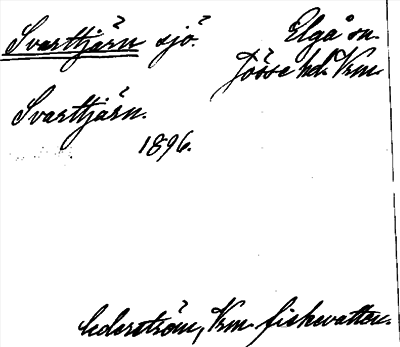 Svarttjärn sjö. Elgå sn.
Jösse hd. Vrm.
Svarttjärn.
1896.
Cederström, Vrm. fiskevatten.